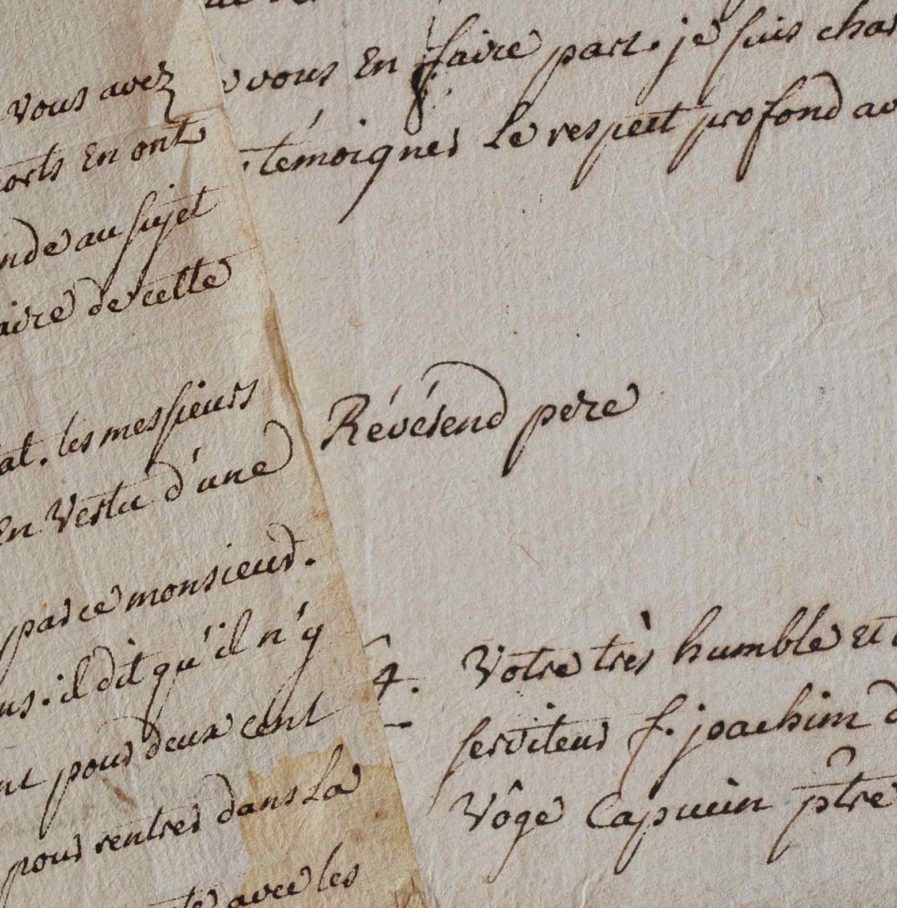 vous avez
orts En ont
nde au sujet
aire de cette
at. les messieurs
En Vertu d'une
par ce monsieur.
ns. il dit qu'il n'y
nt pour deux cent
pour rentrer dans La
avec les
vous En faire part. je suis char
témoigner Le respect profond av
Révérend pere
4.
Votre très humble et
serviteur f. joachim d
Vôge Capucin ptre